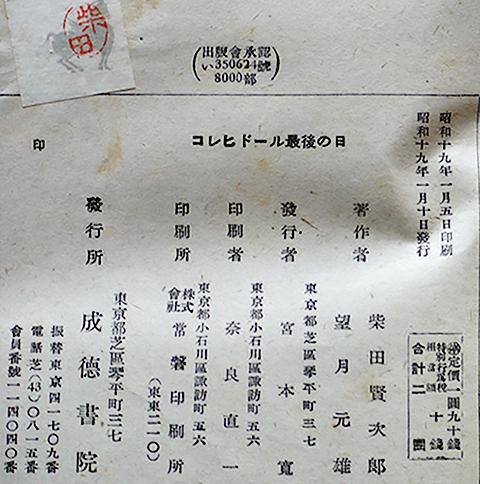 柴田
出版會承認
い350624號
8000部
コレヒドール最後の日
印
昭和十九年一月五日印刷
昭和十九年一月十日發行
停定價一圓九十錢
特別行爲税
相當額 十錢
合計二圓
著作者 柴田賢次郎
望月元雄
東京都芝區琴平町三七
發行者 宮本寬
東京都小石川區諏訪町五六
印刷者 奈良直一
東京都小石川區諏訪町五六
印刷所 株式會社 常磐印刷所
(東東二一〇)
東京都芝區琴平町三七
發行所 成德書院
振替東京四一七〇九番
電話芝(43)〇八一五番
會員番號一一四〇四〇番